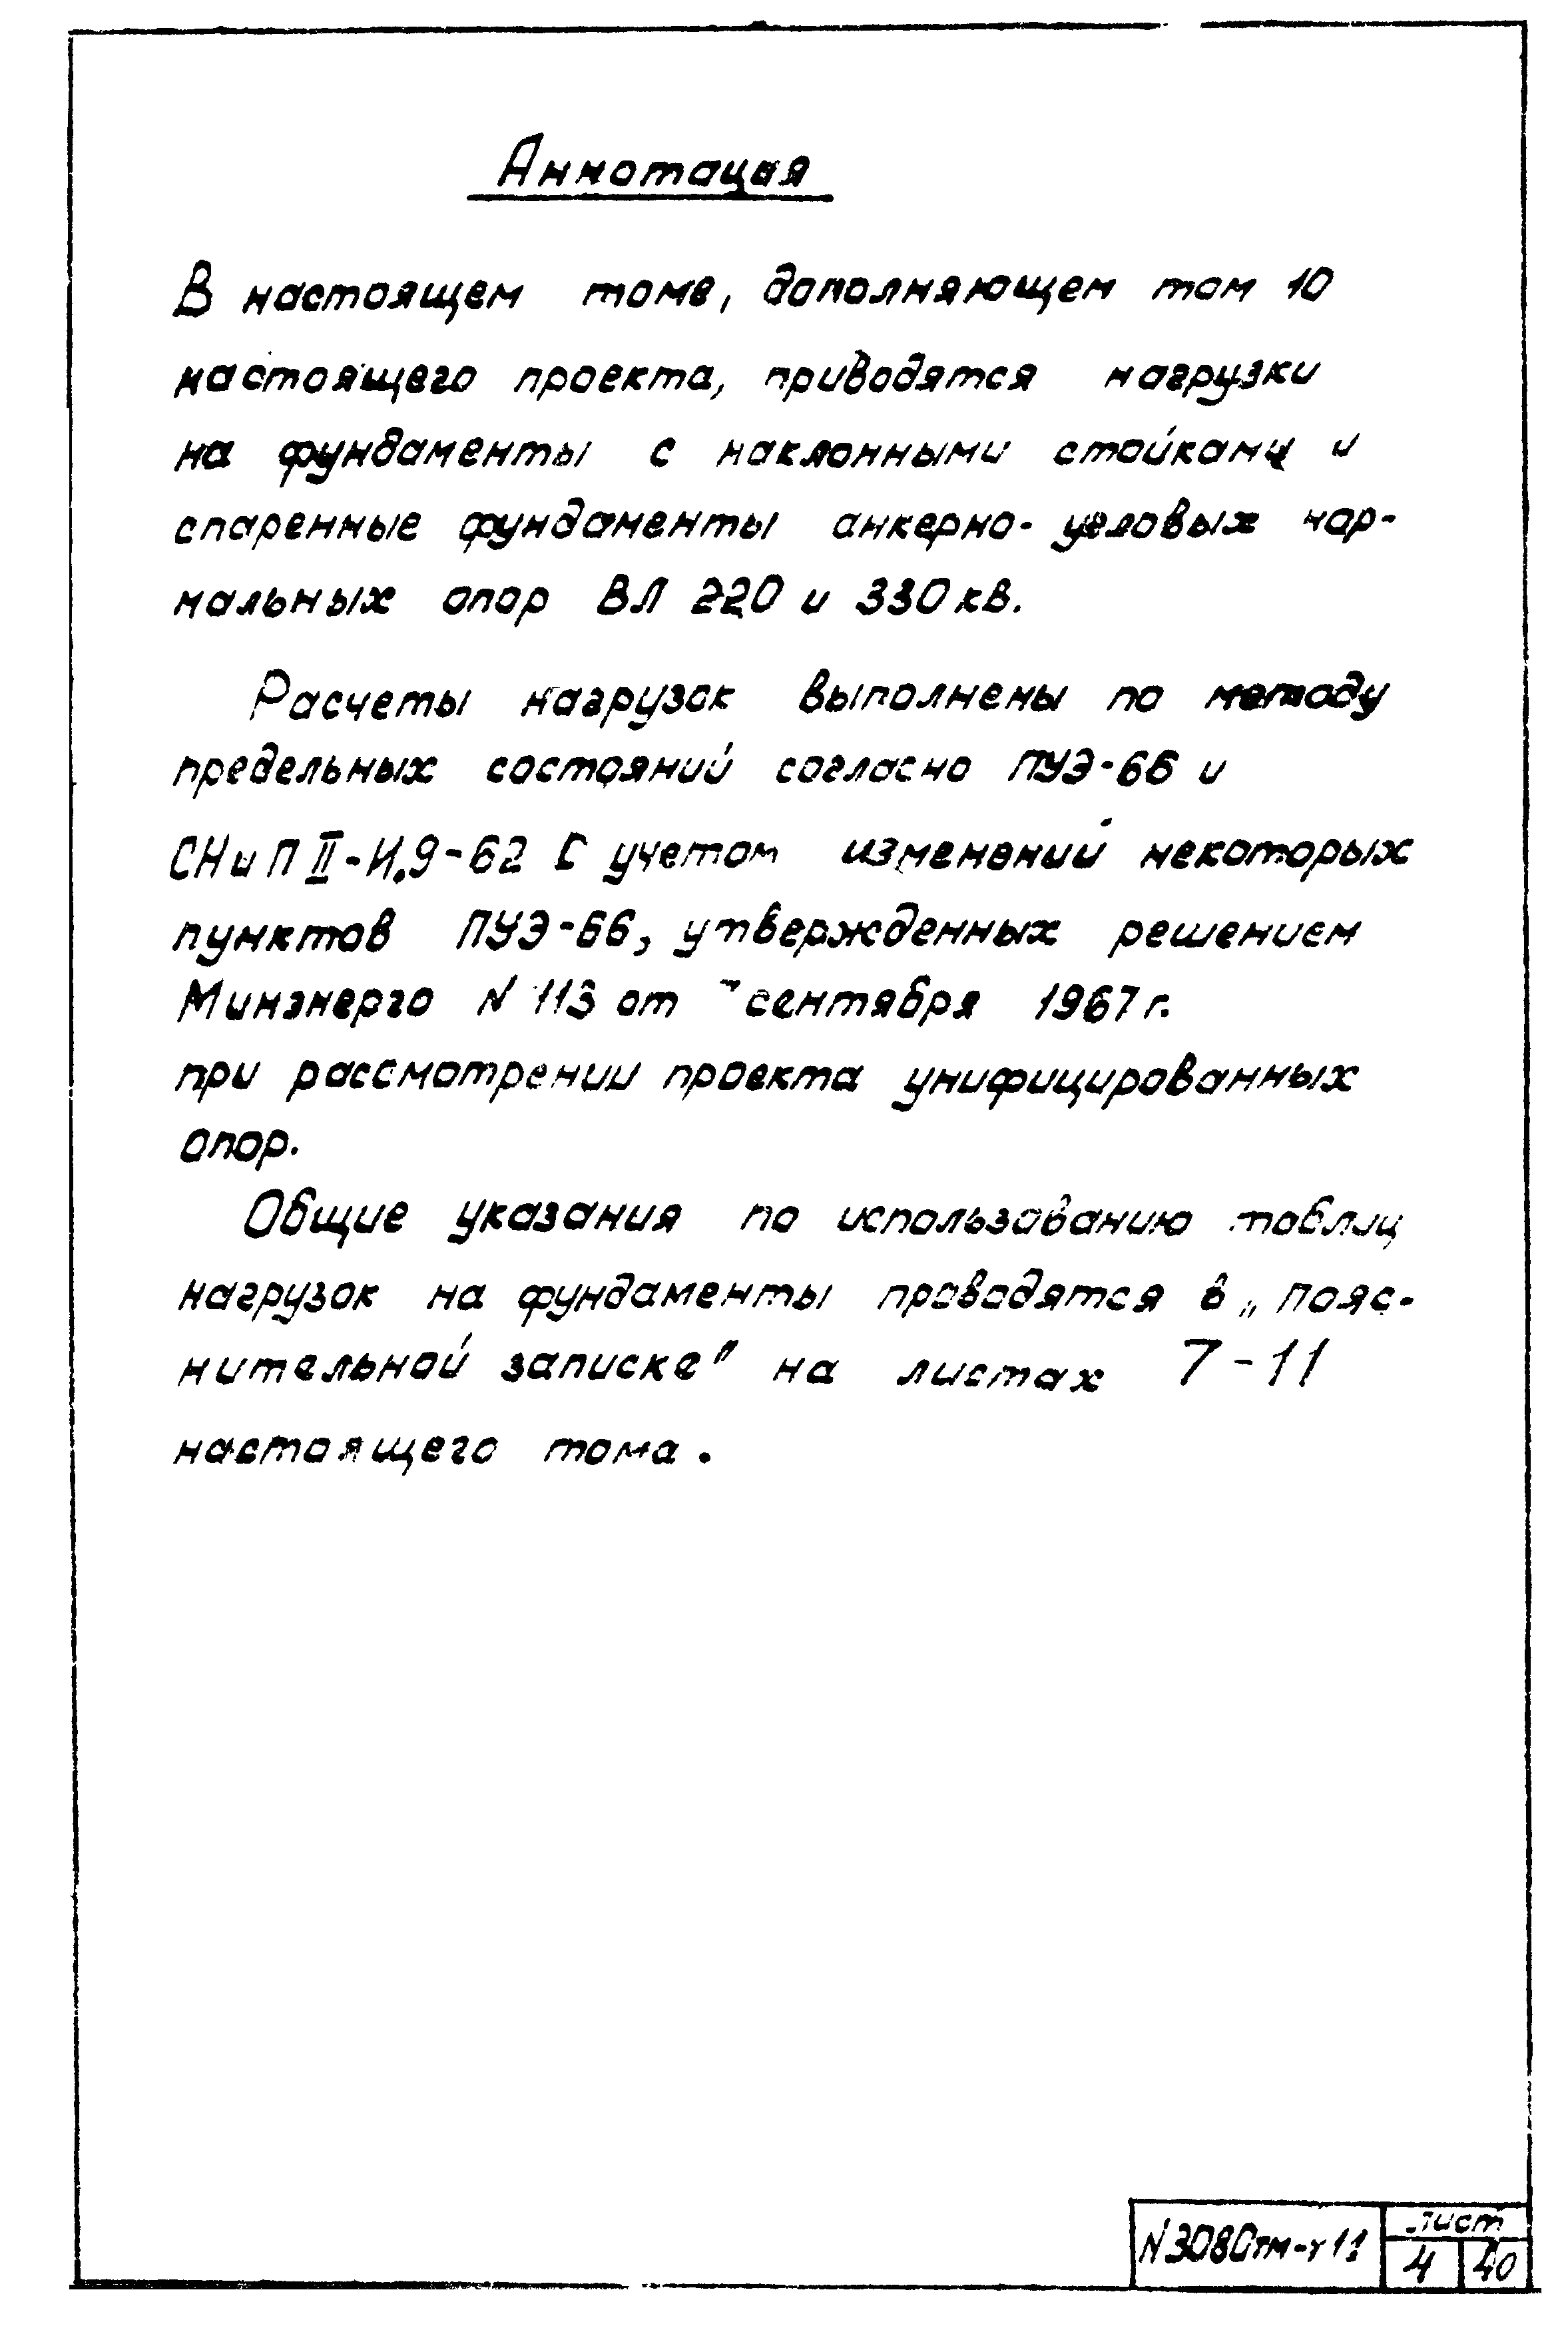 Аннотация
В настоящем томе, дополняющем том 10
настоящего проекта, приводятся нагрузки
на фундаменты с наклонными стойками и
спаренные фундаменты анкерно-угловых нор-
мальных опор ВЛ 220 и 330 кв.
Расчеты нагрузок выполнены по методу
предельных состояний согласно ПУЭ-66 и
СНиП II-И.9-62 с учетом изменений некоторых
пунктов ПУЭ-66, утвержденных решением
Минэнерго N 113 от сентября 1967 г.
при рассмотрении проекта унифицированных
опор.
Общие указания по использованию таблиц
нагрузок на фундаменты проводятся в „ Пояс-
нительной записке" на листах 7-11
настоящего тома.
N3080тм-т11
Лист
4 40